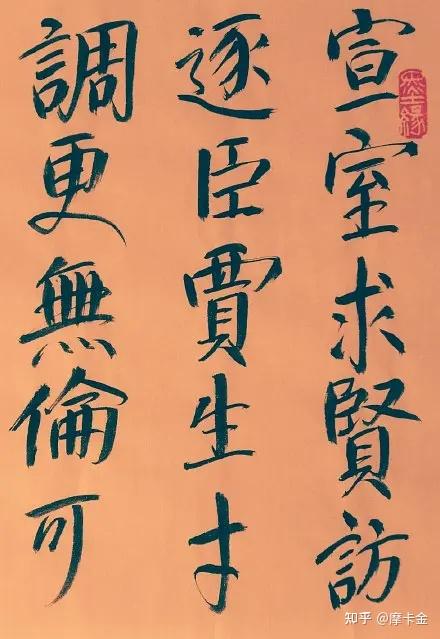 宣室求賢訪
逐臣賈生才
調更無倫可
知乎 @摩卡金